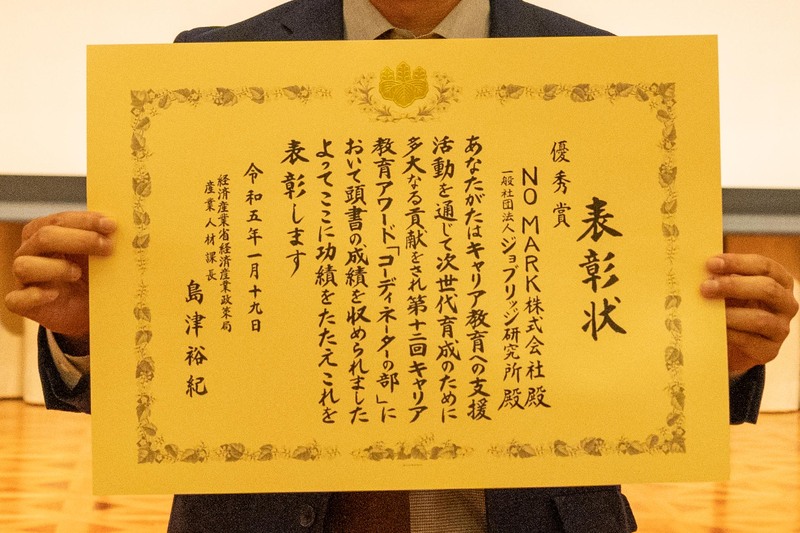 表彰状
優秀賞
NO MARK株式会社殿
一般社団法人ジョブリッジ研究所殿
あなたがたはキャリア教育への支援
活動を通じて次世代育成のために
多大なる貢献をされ第十二回キャリア
教育アワード「コーディネーターの部」に
おいて頭書の成績を収められました
よってここに功績をたたえこれを
表彰します
令和五年一月十九日
経済産業省経済産業政策局
産業人材課長
島津裕紀